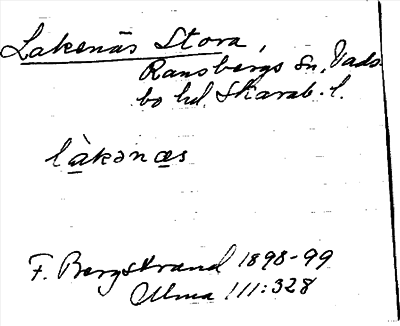 Lakenäs Stora,
Ransbergs Sn, Vads-
bo hd. Skarab. l.
làkənæs
F. Bergstrand 1898-99
Alma III:328